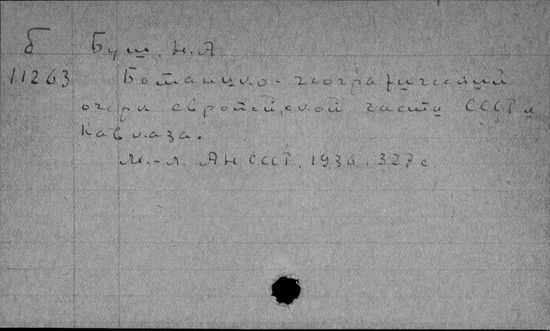 б Буш, Н.А.
11263 Ботанико-географический
очерк европейской части СССР и
Кавказа.
М.-Л. АН СССР, 1936, 327 с.